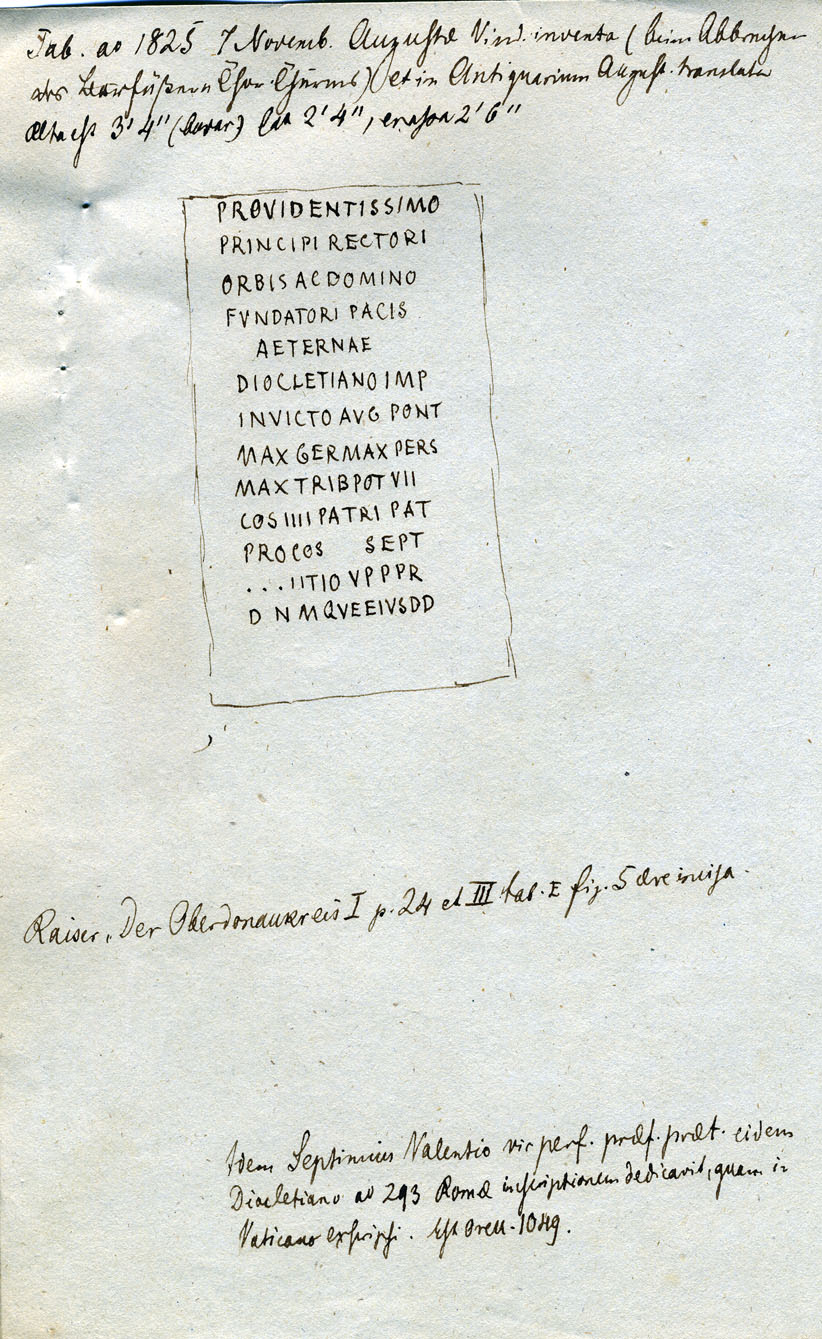 Tab. ao 1825 7 Novemb. Augustæ Vind. inventa (beim Abbrechen
des Barfüßern Thor-Thurms) et in Antiquarium August. translata
alta est 3' 4" (bavar) lata 2' 4", crassa 2' 6"
PROVIDENTISSIMO
PRINCIPI RECTORI
ORBIS AC DOMINO
FVNDATORI PACIS
AETERNAE
DIOCLETIANO IMP
INVICTO AVG PONT
MAX GER MAX PERS
MAX TRIB POT VII
COS IIII PATRI PAT
PROCOS SEPT
...IITIO V P P P R
D N M QVE EIVS D D
Raiser, Der Oberdonaukreis I p. 24 et III tab. E fig. 5 ære incisa.
Idem Septimius Valentio vir perf. præf. præt. eidem
Diocletiano ao 293 Romæ inscriptionem dedicavit, quam in
Vaticano exscripsi. Est Orell. 1049.